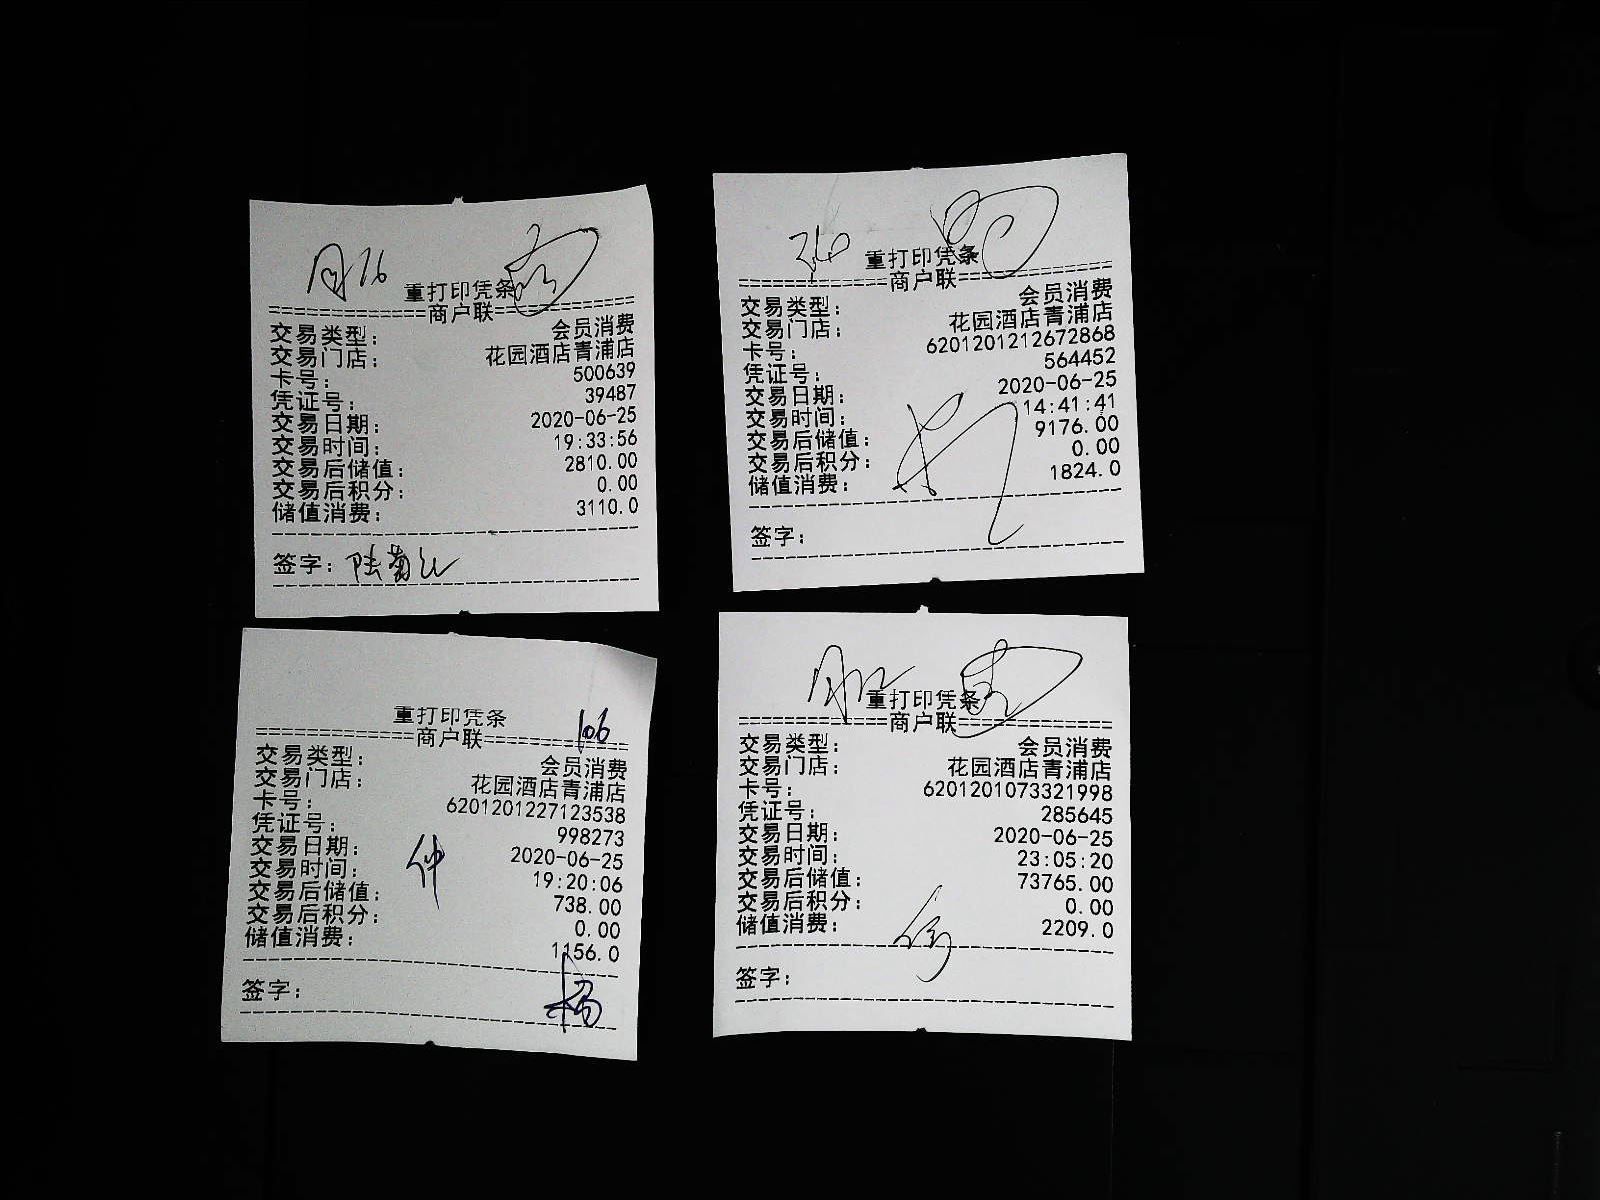 重打印凭条
============商户联============
交易类型： 会员消费
交易门店： 花园酒店青浦店
卡号： 500639
凭证号： 39487
交易日期： 2020-06-25
交易时间： 19:33:56
交易后储值： 2810.00
交易后积分： 0.00
储值消费： 3110.0
签字：陆菊红
重打印凭条
============商户联============
交易类型： 会员消费
交易门店： 花园酒店青浦店
卡号： 6201201212672868
凭证号： 564452
交易日期： 2020-06-25
交易时间： 14:41:41
交易后储值： 9176.00
交易后积分： 0.00
储值消费： 1824.0
签字：
重打印凭条
106
============商户联============
交易类型： 会员消费
交易门店： 花园酒店青浦店
卡号： 6201201227123538
凭证号： 998273
交易日期： 2020-06-25
交易时间： 19:20:06
交易后储值： 738.00
交易后积分： 0.00
储值消费： 1156.0
仲
签字： 杨
重打印凭条
============商户联============
交易类型： 会员消费
交易门店： 花园酒店青浦店
卡号： 6201201073321998
凭证号： 285645
交易日期： 2020-06-25
交易时间： 23:05:20
交易后储值： 73765.00
交易后积分： 0.00
储值消费： 2209.0
签字：